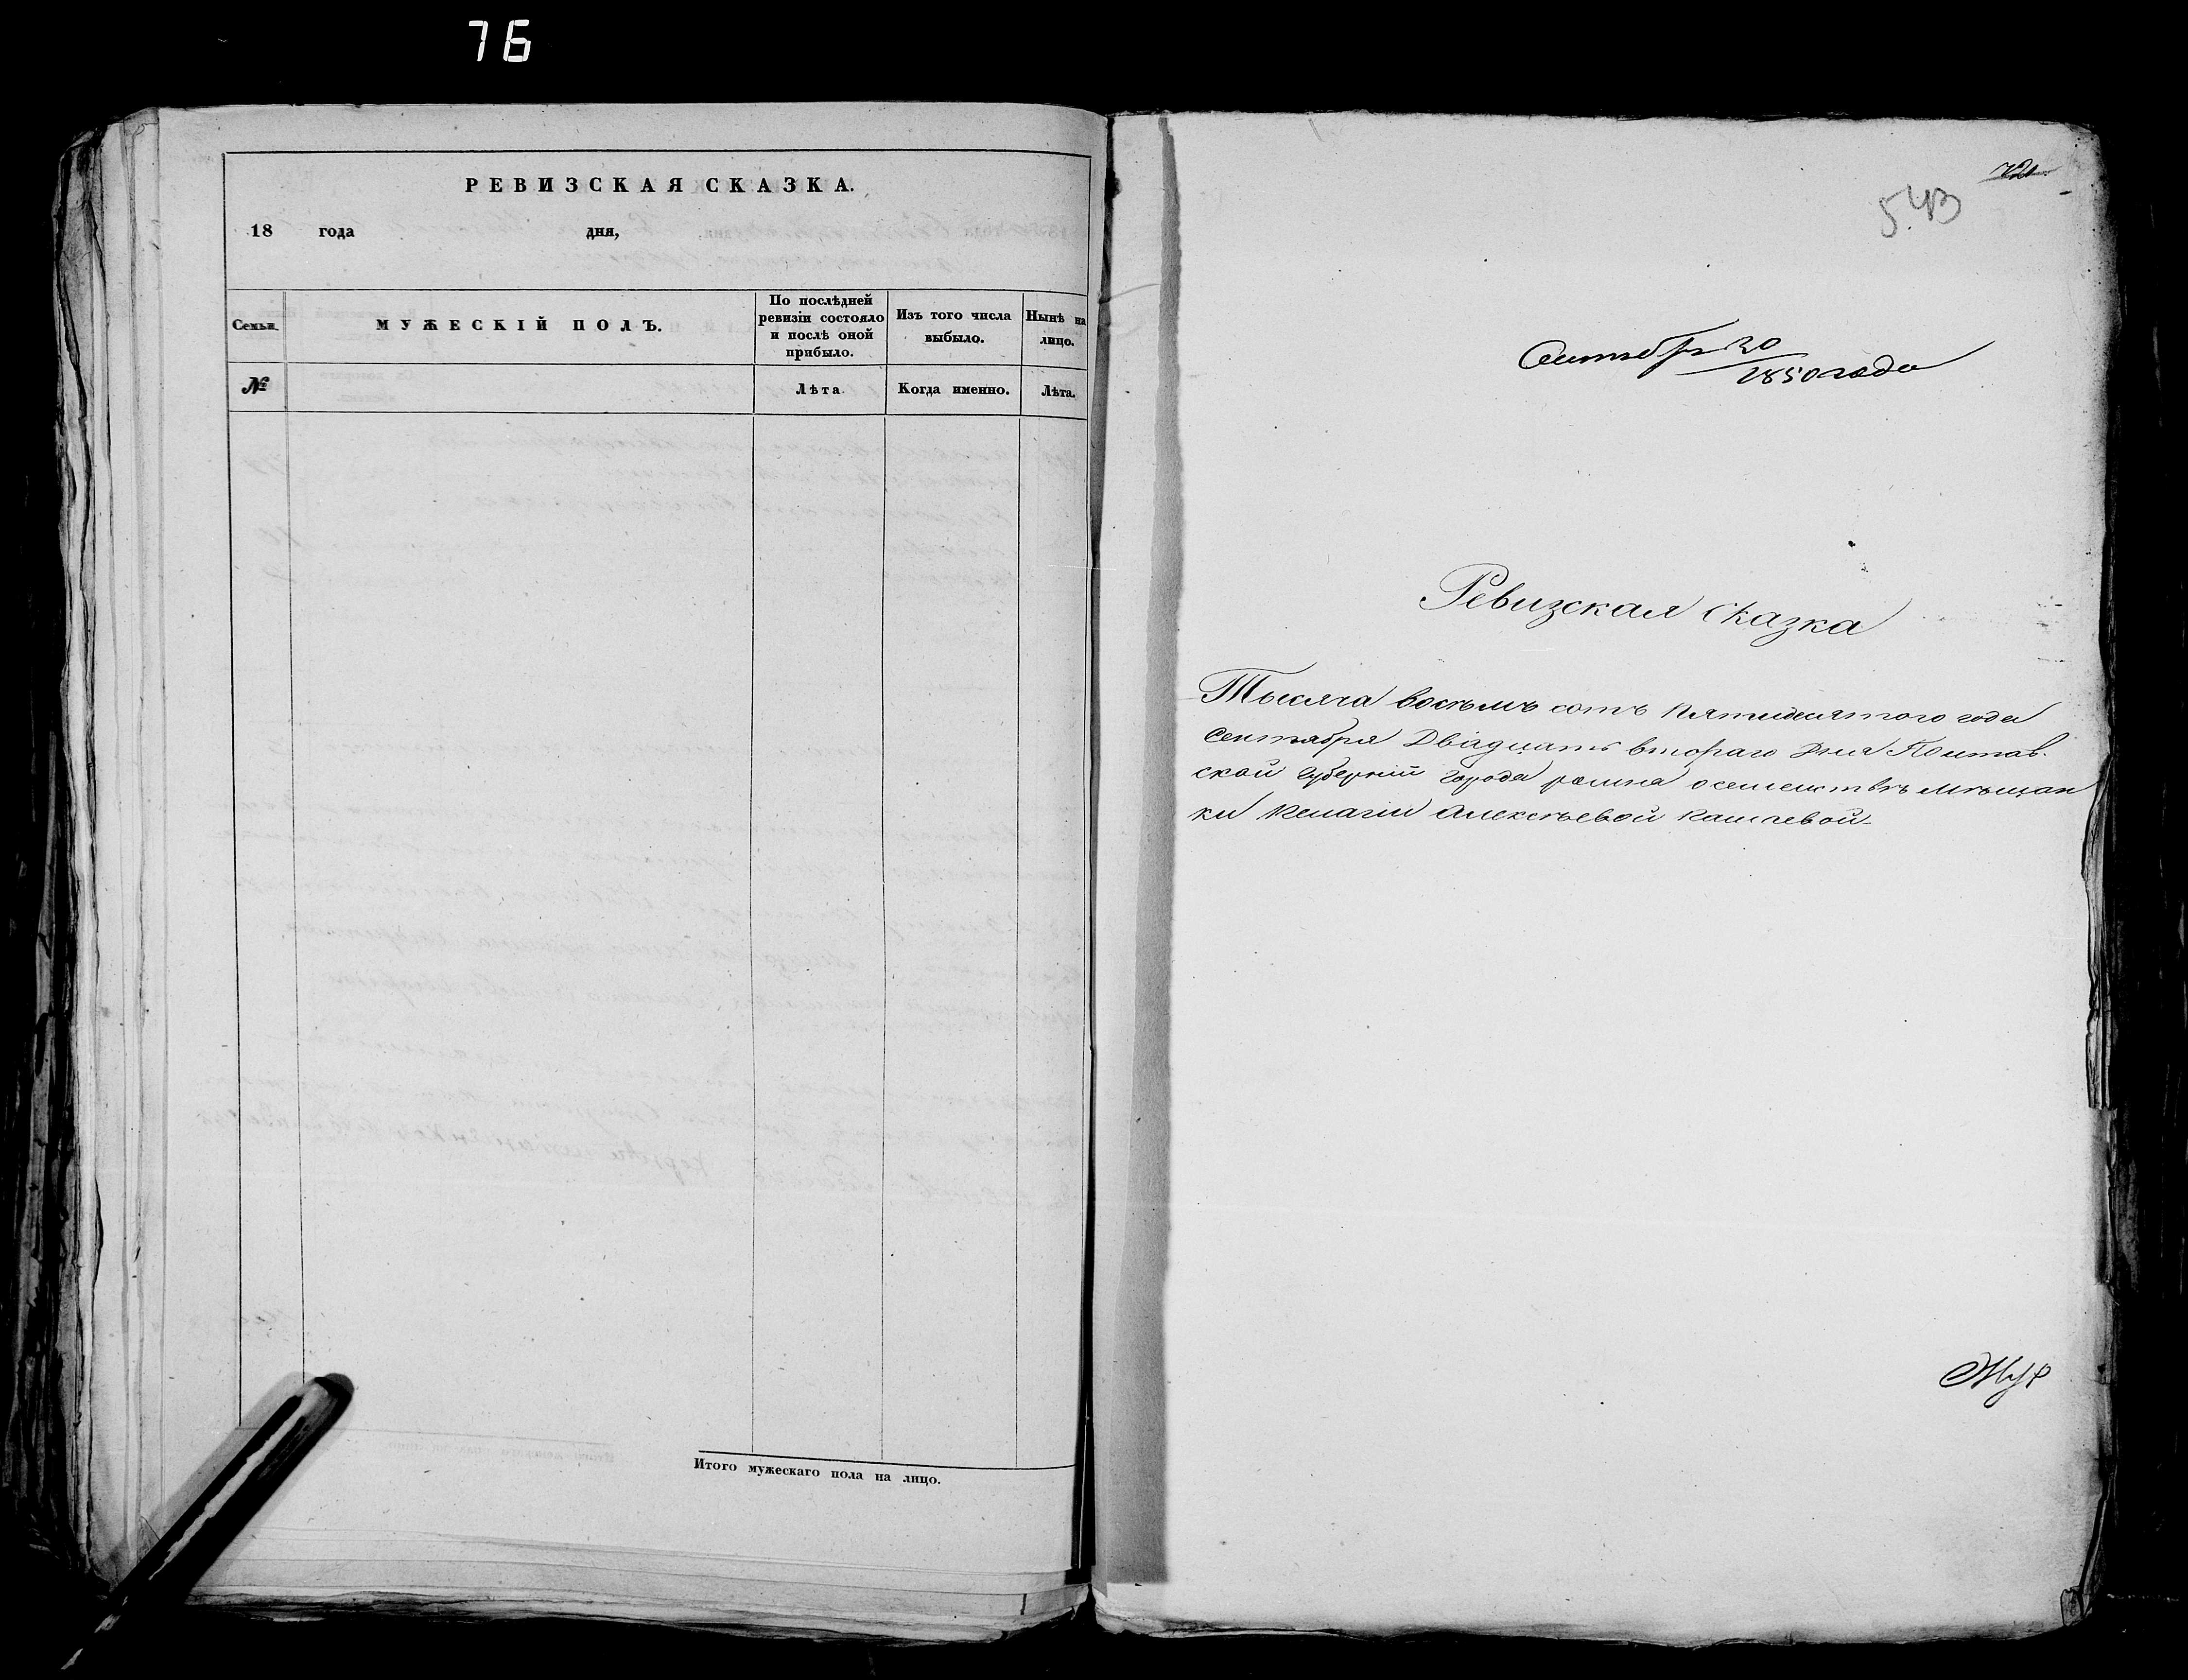 76
РЕВИЗСКАЯ СКАЗКА.
18 года дня,
Семьи. МУЖЕСКІЙ ПОЛЪ. По послѣдней ревизіи состояло и послѣ оной прибыло. Изъ того числа выбыло. Нынѣ на лицо.
№ Лѣта. Когда именно. Лѣта.
Итого мужескаго пола на лицо.
543
Сентября 20
1850 года
Ревизская Сказка
Тысяча восемь сотъ пятидесятого года
Сентября Двадцать втораго дня Полтав.
ской Губерніи города ромна осемействѣ мѣщан
ки Пелагіи Алексѣевой